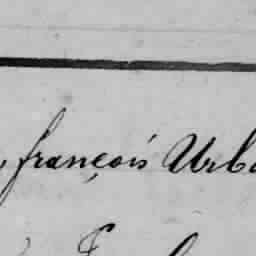 , françois Urb